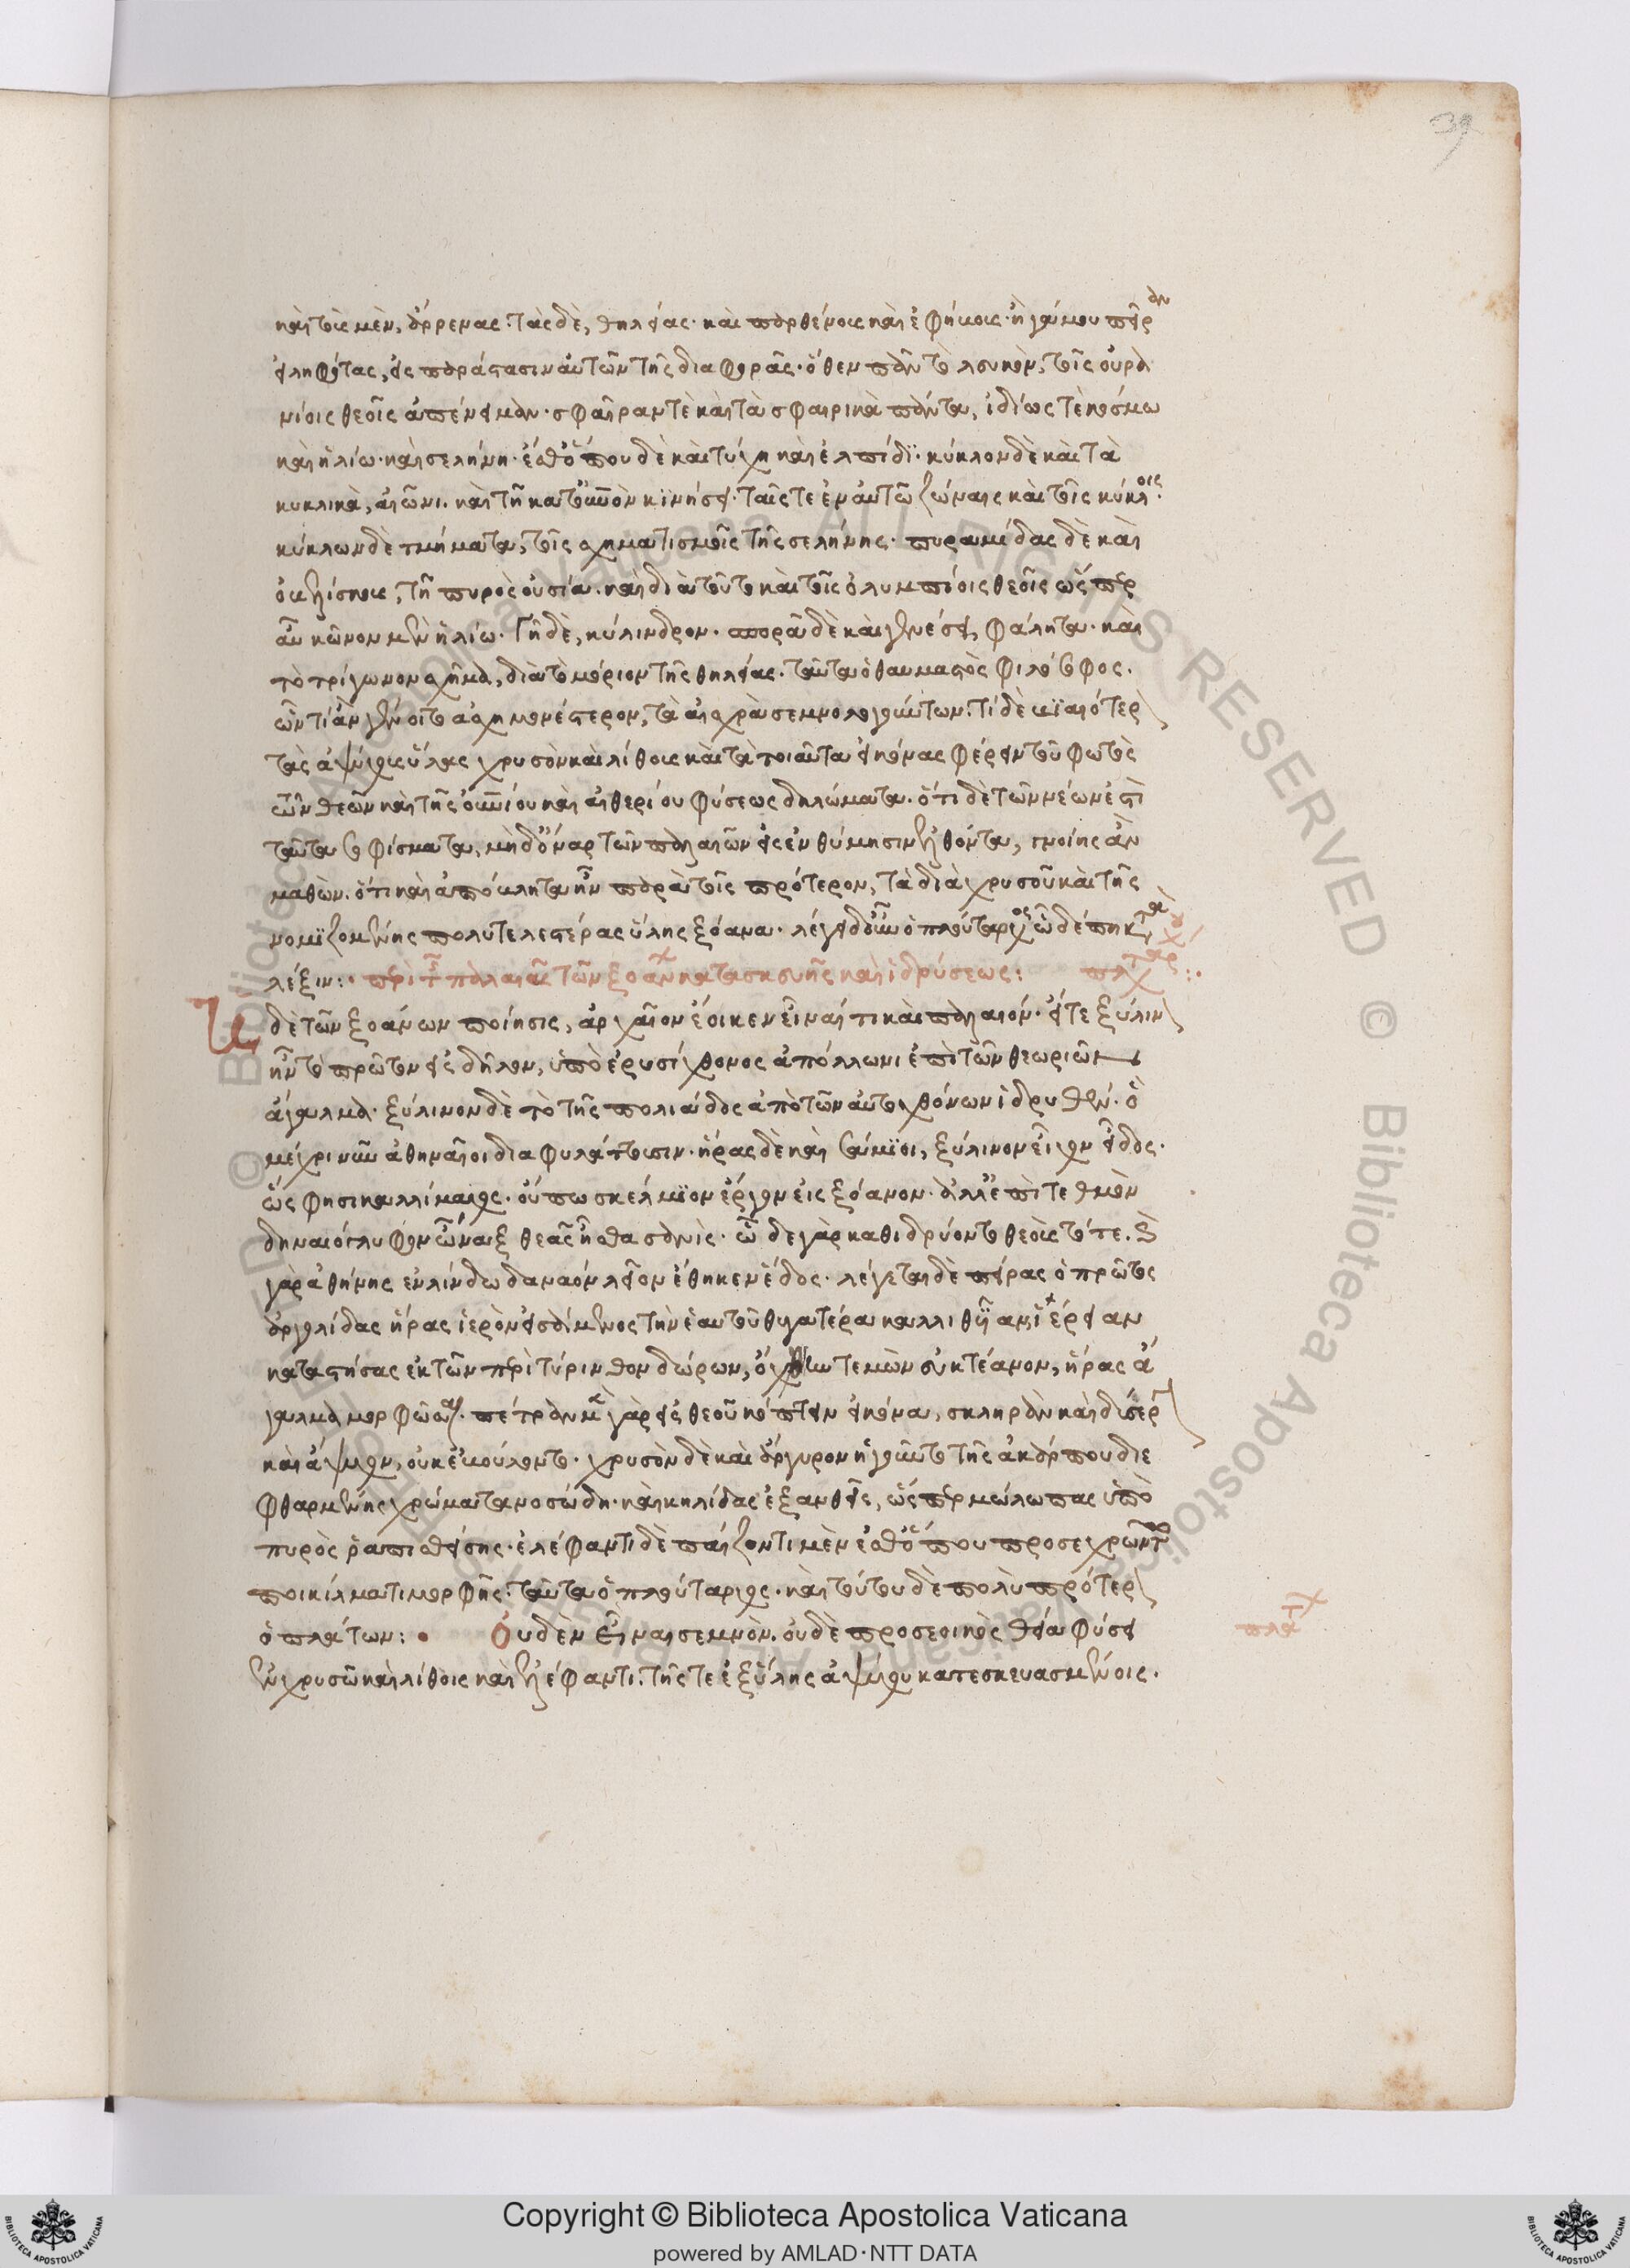 39
καὶ τοὺς μὲν, ἄρρενας. τὰς δὲ, θηλείας· καὶ παρθένους καὶ ἐφήβους· ἢ γάμου πεῖραν
εἰληφότας, εἰς παράστασιν αὐτῶν τῆς διαφορᾶς· ὅθεν πᾶν τὸ λευκὸν, τοῖς οὐρα
νίοις θεοῖς ἀπένειμαν· σφαῖραν τὲ καὶ τὰ σφαιρικὰ πάντα, ἰδίως τὲ κόσμω
καὶ ἡλίω· καὶ σελήνη· ἔσθ' ὅπου δὲ καὶ τύχη καὶ ἐλπίδι· κύκλον δὲ καὶ τὰ
κυκλικὰ, αἰῶνι. καὶ τῆ κατ' οὐρανὸν κινήσει· ταῖς τε ἐν αὐτῶ ζώναις καὶ τοῖς κύκλοις.
κύκλων δὲ τμήματα, τοῖς σχηματισμοῖς τῆς σελήνης· πυραμίδας δὲ καὶ
ὀβελίσκους, τῆ πυρὸς οὐσία. καὶ διὰ τοῦτο καὶ τοῖς ὀλυμπίοις θεοῖς ὥσπερ
αὖ κῶνον μὲν ἡλίω· Γῆ δὲ, κύλινδρον· σπορᾶ δὲ καὶ γενέσει, φάλητα· καὶ
τὸ τρίγωνον σχῆμα, διὰ τὸ μόριον τῆς θηλείας. ταῦτα ὁ θαυμαστὸς φιλόσοφος.
ὧν τί ἂν γένοιτο ἀσχημονέστερον, τὰ αἰσχρὰ σεμνολογούντων. τί δὲ βιαιότερον
τὰς ἀψύχους ὕλας χρυσὸν καὶ λίθους καὶ τὰ τοιαῦτα εἰκόνας φέρειν τοῦ φωτὸς
τῶν θεῶν καὶ τῆς οὐρανίου καὶ αἰθερίου φύσεως δηλώματα. ὅτι δὲ τῶν νέων ἐστὶ
ταῦτα σοφίσματα, μὴδ' ὄναρ τῶν παλαιῶν εἰς ἐνθύμησιν ἐλθόντα, γνοίης ἂν
μαθὼν. ὅτι καὶ ἀπόβλητα ἦν παρὰ τοῖς πρότερον, τὰ διὰ χρυσοῦ καὶ τῆς
νομιζομένης πολυτελεστέρας ὕλης ξόανα. λέγει δ' οὖν ὁ πλούταρχος ὧδέ πη κατὰ
λέξιν:· περὶ τῆς παλαιᾶς τῶν ξοάνων κατασκευῆς καὶ ἱδρύσεως: πλουτάρχου:·
Ἡ δὲ τῶν ξοάνων ποίησις, ἀρχαῖον ἔοικεν εἶναί τι καὶ παλαιόν. εἴτε ξύλινον
ἦν τὸ πρῶτον εἰς δῆλον, ὑπὸ ἐρυσίχθονος ἀπόλλωνι ἐπὶ τῶν θεωριῶν
ἄγαλμα. ξύλινον δὲ τὸ τῆς πολιάδος ἀπὸ τῶν αὐτοχθόνων ἱδρυθέν. ὃ
μέχρι νῦν ἀθηναῖοι διαφυλάττουσιν· ἥρας δὲ καὶ σάμιοι, ξύλινον εἶχον εἶδος.
ὥς φησι καλλίμαχος. οὔπω σκέλμιον ἔργον εἰς ξόανον. ἀλλ' ἐπὶ τεθμὸν
δηναιὸ γλυφόνω ἄναξ θεᾶς ἦσθα σανίς· ὧδε γὰρ καθιδρύοντο θεοὺς τότε. καὶ
γὰρ ἀθήνης ἐν λίνδω δαναὸν λεῖον ἔθηκεν ἕδος. λέγεται δὲ πείρας ὁ πρῶτος
ἀργολίδας ἥρας ἱερὸν εἰσάμενος τὴν ἑαυτοῦ θυγατέρα καλλίθυϊαν ἱέρειαν
καταστήσας ἐκ τῶν περὶ τίρυνθον δώρων, ὄγχνην τεμὼν εὐκτέανον, ἥρας ἄ
γαλμα μορφῶσαι. πέτραν μὲν γὰρ εἰς θεοῦ κόπτειν εἰκόνα, σκληρὰν καὶ δύσεργον
καὶ ἄψυχον, οὐκ ἐβούλοντο. χρυσὸν δὲ καὶ ἄργυρον ἡγοῦντο τῆς ἀκάρπου διε
φθαρμένης χρώματα νοσώδη· καὶ κηλίδας ἐξανθεῖς, ὥσπερ μώλωπας ὑπὸ
πυρὸς ῥαπισθείσης. ἐλέφαντι δὲ παίζοντι μὲν ἔσθ' ὅπου προσεχρῶντο
ποικίλματι μορφῆς. ταῦτα ὁ πλούταρχος. καὶ τούτου δὲ πολὺ πρότερον
ὁ πλάτων: · Οὐδὲν εἶναι σεμνὸν. οὐδὲ προσεοικὸς θεία φύσει
ἐν χρυσῶ καὶ λίθοις καὶ ἐλέφαντι. τῆς τε ἐξ ὕλης ἀψύχου κατεσκευασμένοις.
πλάτ
Copyright © Biblioteca Apostolica Vaticana
powered by AMLAD·NTT DATA